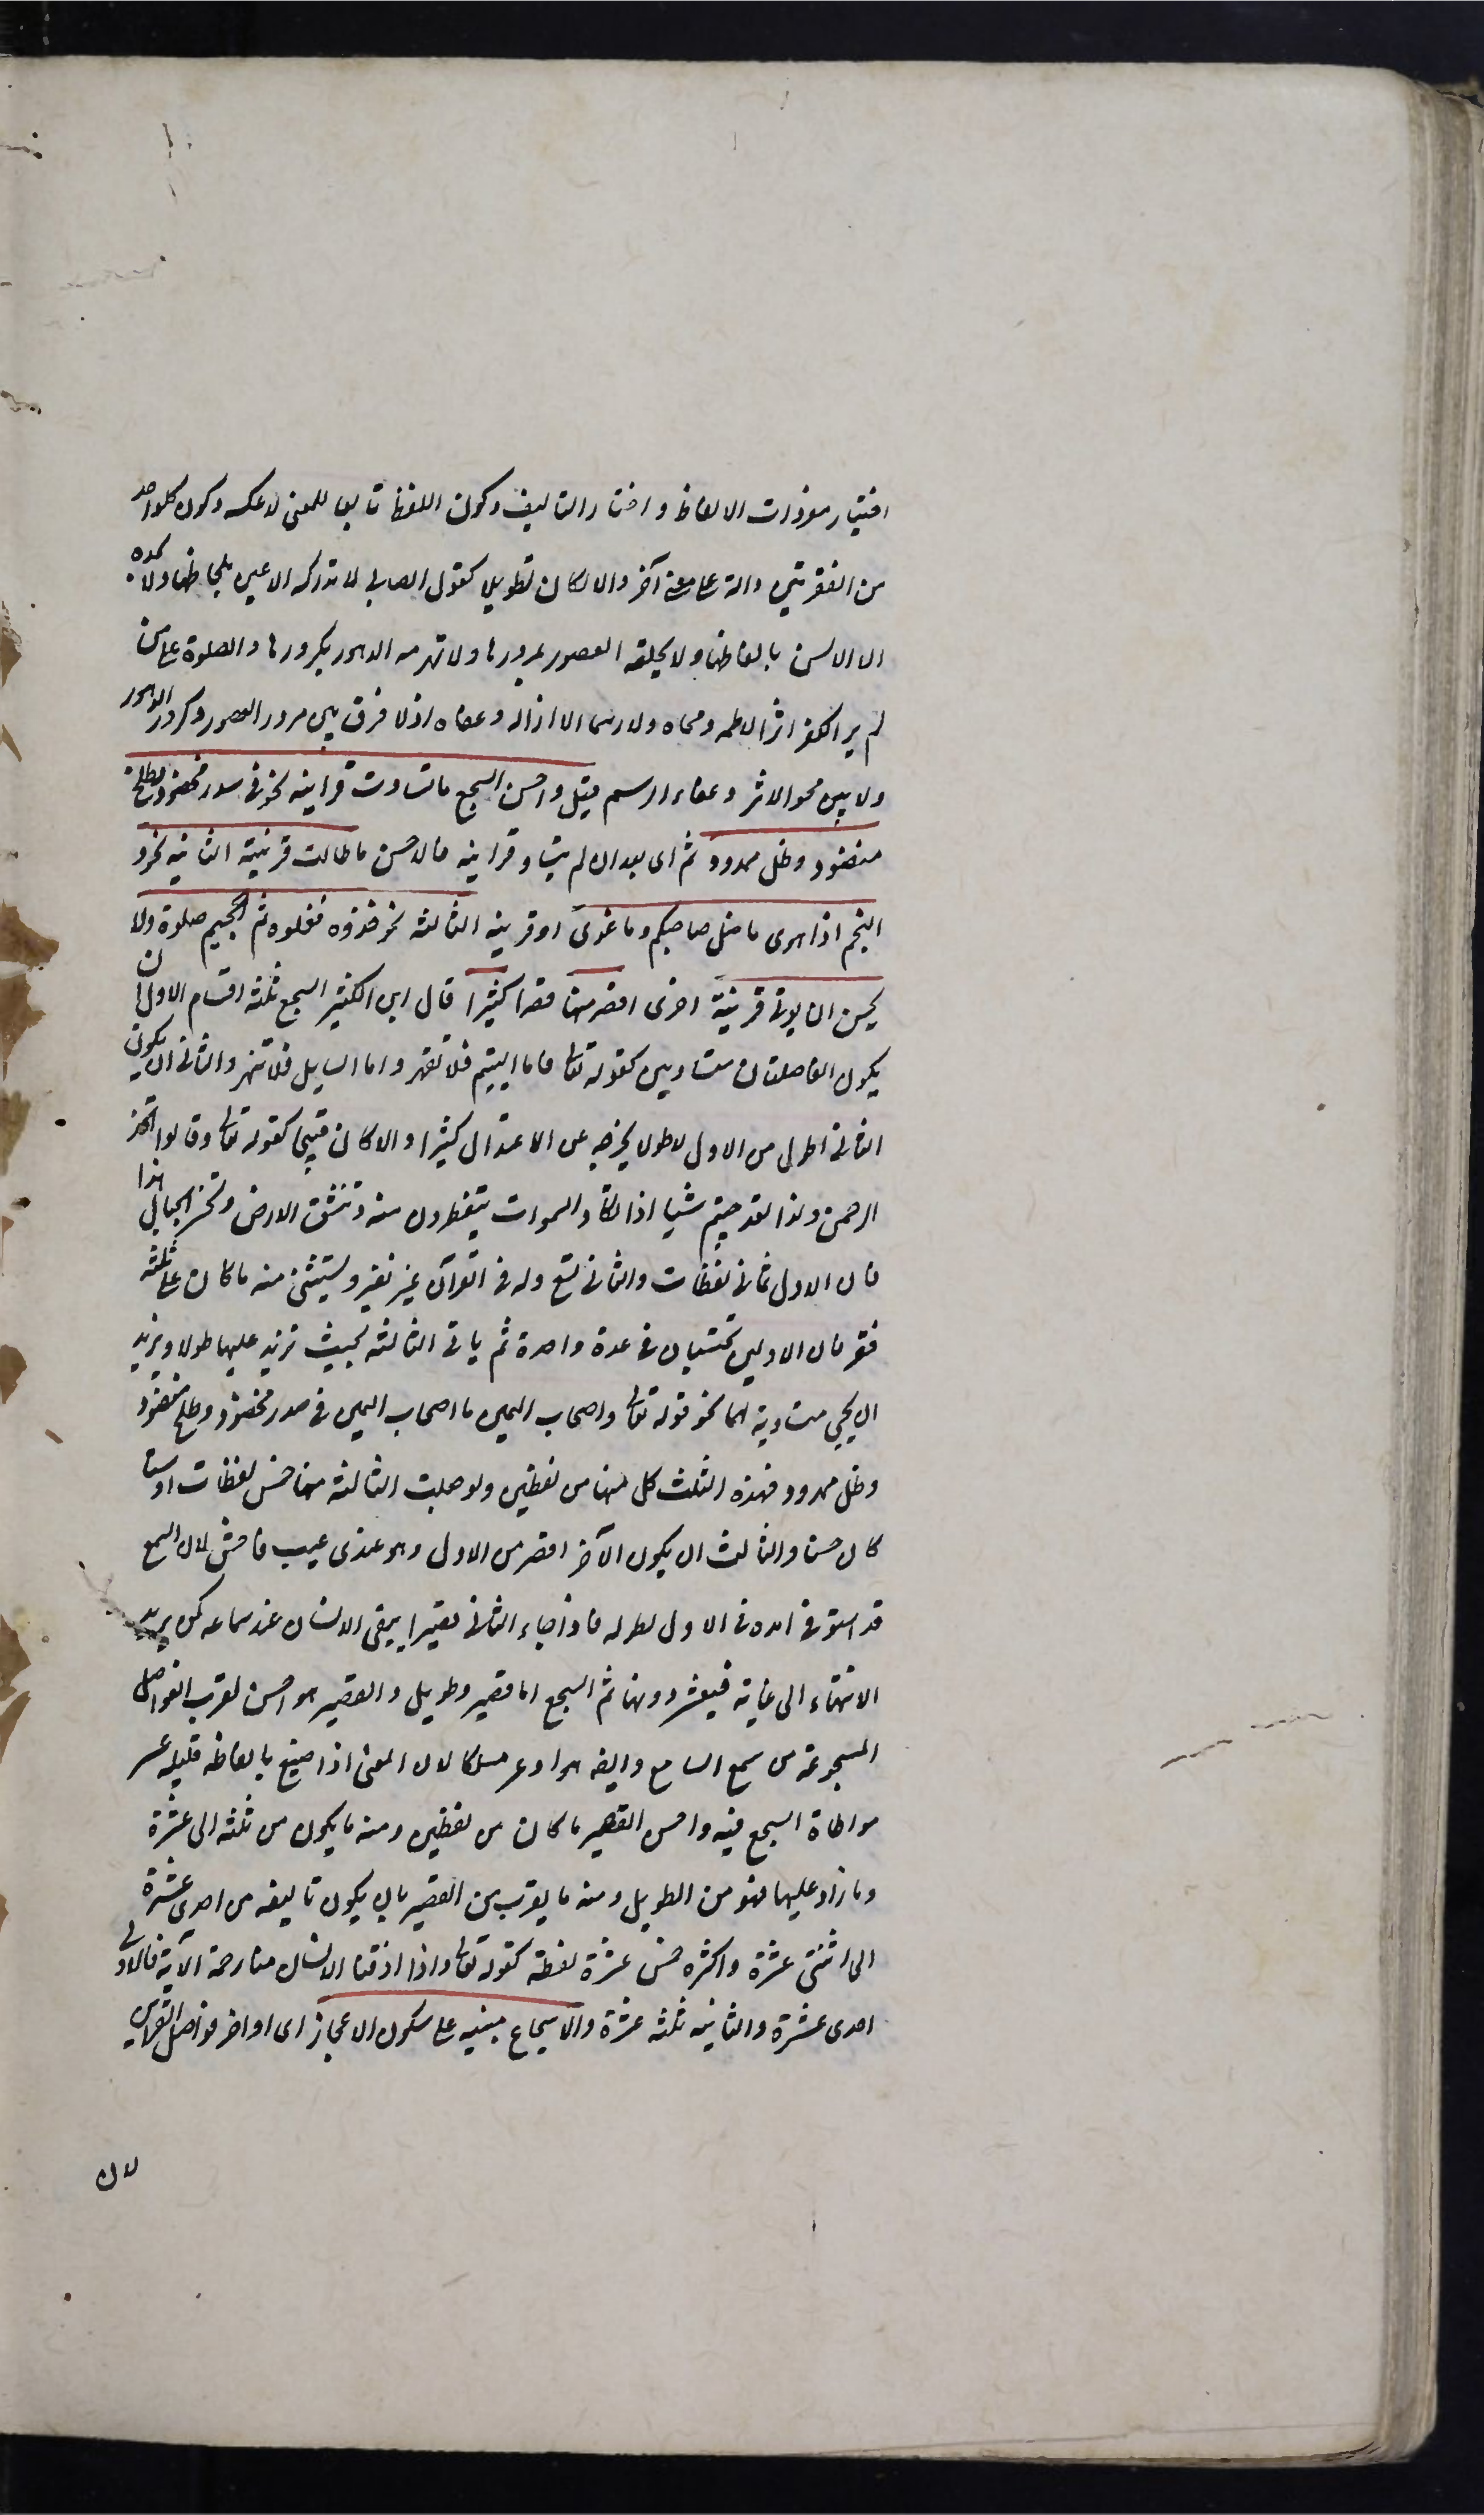 اختيار مفردات الالفاظ واختار التاليف وكون اللفظ تابعا للمعنى لا عكسه وكون كلواحد
من الفقرتين دالة على معنى آخر والا لكان تطويلا كقول الصابى لا تدركه الاعين بلحاظها ولا تحده
الا الالسن بالفاظها ولا يخلقه العصور بمرورها ولا تهرمه الدهور بكرورها والصلوة على من
لم ير الكفر اثرا الا طمسه ومحاه ولا رسما الا ازاله وعفاه اذ لا فرق بين مرور العصور وكرور الدهور
ولا بين محو الاثر وعفاء الرسم قيل واحسن السجع ما تساوت قراينه نحو فى سدر مخضود وطلح
منضود وظل ممدود ثم اى بعد ان لم يتساو قراينه فالاحسن ما طالت قرينته الثانية نحو و
النجم اذا هوى ما ضل صاحبكم وما غوى او قرينه الثالثه نحو خذوه فغلوه ثم الجحيم صلوه ولا
يحسن ان يوتى قرينة اخرى اقصر منها قصرا كثيرا قال ابن الكثير السجع ثلثة اقسام الاول ان
يكون الفاصلتان متساويين كقوله تعالى فاما اليتيم فلا تقهر واما السايل فلا تنهر والثانى ان يكون
الثانى اطول من الاول لا طولا يخرجه عن الاعتدال كثيرا والا كان قبيحا كقوله تعالى وقالوا اتخذ
الرحمن ولدا لقد جيتم شيا ادا تكاد السموات يتفطرون منه وتنشق الارض وتخر الجبال هدا
فان الاول ثمانى لفظات والثانى تسع وله فى القرآن غير نظير ويستثنى منه ما كان على ثلثه
فقر فان الاولين تحتسبان فى عدة واحدة ثم ياتى الثالثه بحيث تزيد عليهما طولا ويزيد
ان يجى متساوية لهما نحو قوله تعالى واصحاب اليمين ما اصحاب اليمين فى سدر مخضود وطلح منضود
وظل ممدود فهذه الثلث كل منها من لفظين ولو جعلت الثالثه منها خمس لفظات او ستا
كان حسنا والثالث ان يكون الآخر اقصر من الاول وهو عندى عيب فاحش لان السمع
قد استوفى امده فى الاول لطوله فاذا جاء الثانى قصيرا يبقى الانسان عند سماعه كمن يريد
الانتهاء الى غاية فيعثر دونها ثم السجع اما قصير وطويل والقصير هو احسن لقرب الفواصل
المسجوعة من سمع السامع وايضا هو اوعر مسلكا لان المعنى اذا صيغ بالفاظ قليله عسر
مواطاة السجع فيه واحسن القصير ما كان من لفظين ومنه ما يكون من ثلثه الى عشرة
وما زاد عليها فهو من الطويل ومنه ما يقرب من القصير بان يكون تاليفه من احدى عشرة
الى اثنتى عشرة واكثره خمس عشرة لفظة كقوله تعالى واذا اذقنا الانسان منا رحمة الآية فالاولى
احدى عشرة والثانيه ثلثه عشرة والاسجاع مبنيه على سكون الاعجاز اى اواخر فواصل القراين
لان